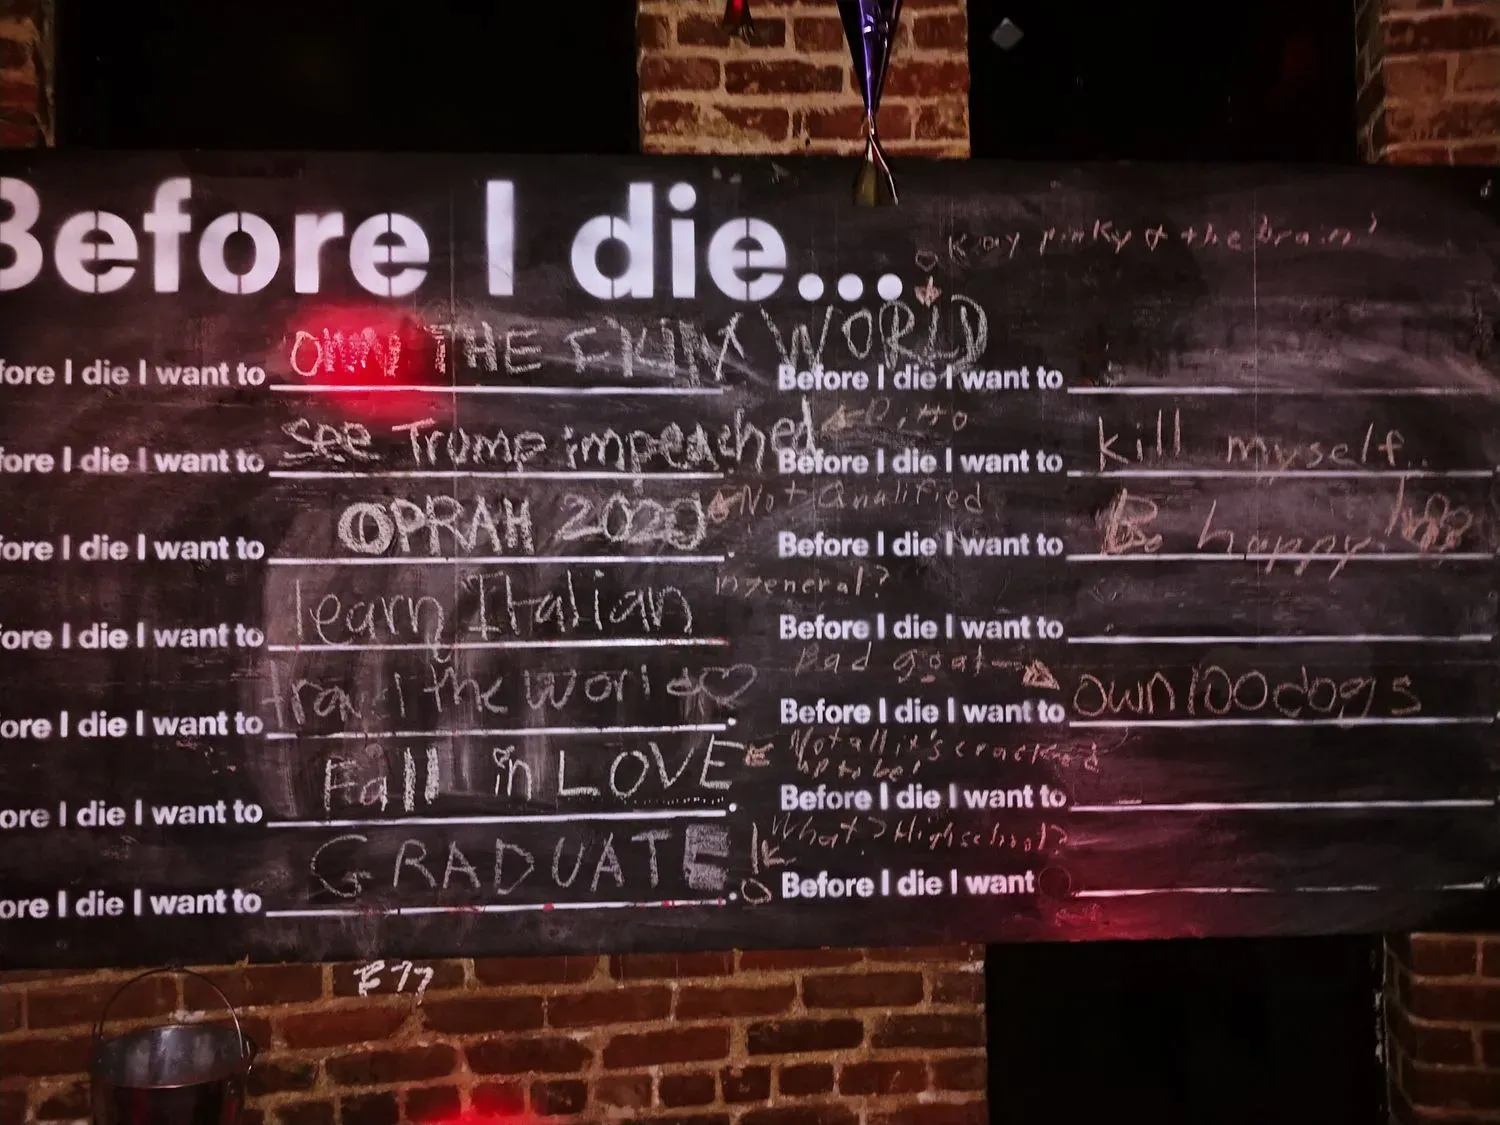 Before I die...
okay pinky & the brain!
fore I die I want to OWN THE FKIN WORLD
fore I die I want to see Trump impeached
Ditto
fore I die I want to OPRAH 2020
Not Qualified
fore I die I want to learn Italian
in general?
ore I die I want to travel the world
ore I die I want to Fall in LOVE
Not all it's cracked
up to be!
ore I die I want to GRADUATE
What? Highschool?
Before I die I want to
Before I die I want to kill myself..
Before I die I want to Be happy!
Before I die I want to
Bad goal
Before I die I want to own 100 dogs
Before I die I want to
Before I die I want